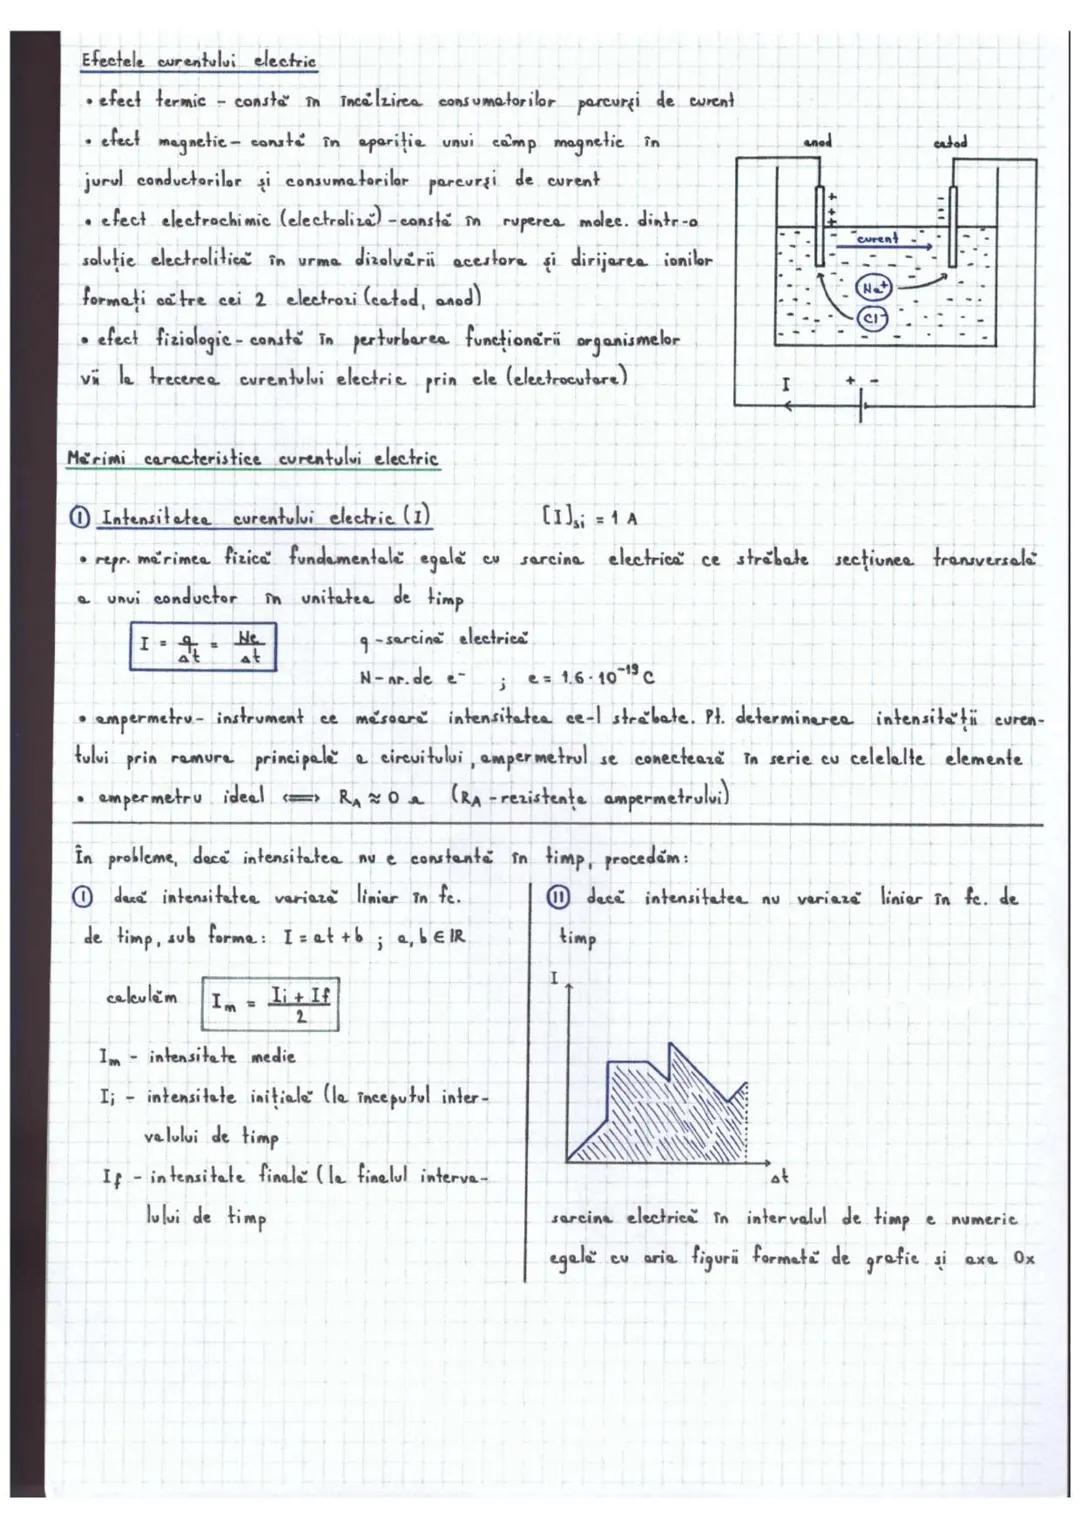 Efectele curentului electric
• efect termic - constă în încălzirea consumatorilor parcurși de curent
• efect magnetic - constă în apariția unui câmp magnetic în
jurul conductorilor și consumatorilor parcurși de curent
• efect electrochimic (electroliză) - constă în ruperea molec. dintr-o
soluție electrolitică în urma dizolvării acestora și dirijarea ionilor
formați către cei 2 electrozi (catod, anod)
• efect fiziologic - constă în perturbarea funcționării organismelor
vii la trecerea curentului electric prin ele (electrocutare)
anod catod
+ + + +
- - - -
curent
Na⁺
Cl⁻
I + -
Mărimi caracteristice curentului electric
① Intensitatea curentului electric (I) [I]si = 1 A
• repr. mărimea fizică fundamentală egală cu sarcina electrică ce străbate secțiunea transversală
a unui conductor în unitatea de timp
I = q/Δt = Ne/Δt q - sarcină electrică
N - nr. de e⁻ ; e = 1.6 · 10⁻¹⁹ C
• ampermetru - instrument ce măsoară intensitatea ce-l străbate. Pt. determinarea intensității curen-
tului prin ramura principală a circuitului, ampermetrul se conectează în serie cu celelalte elemente
• ampermetru ideal <=> RA ≈ 0 Ω (RA - rezistența ampermetrului)
În probleme, dacă intensitatea nu e constantă în timp, procedăm:
Ⓘ dacă intensitatea variază liniar în fc.
de timp, sub forma: I = at + b ; a, b ∈ ℝ
calculăm Im = Ii + If / 2
Im - intensitate medie
Ii - intensitate inițială (la începutul inter-
valului de timp
If - intensitate finală (la finalul interva-
lului de timp
Ⓘⓘ dacă intensitatea nu variază liniar în fc. de
timp
I
Δt
sarcina electrică în intervalul de timp e numeric
egală cu aria figurii formată de grafic și axa Ox